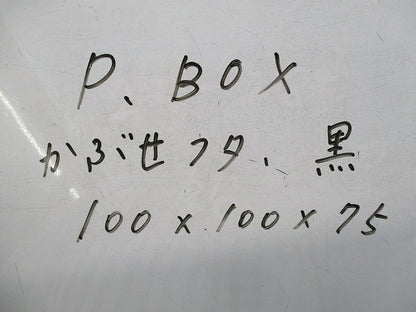 P、BOX
かぶせフタ、黒
100×100×75